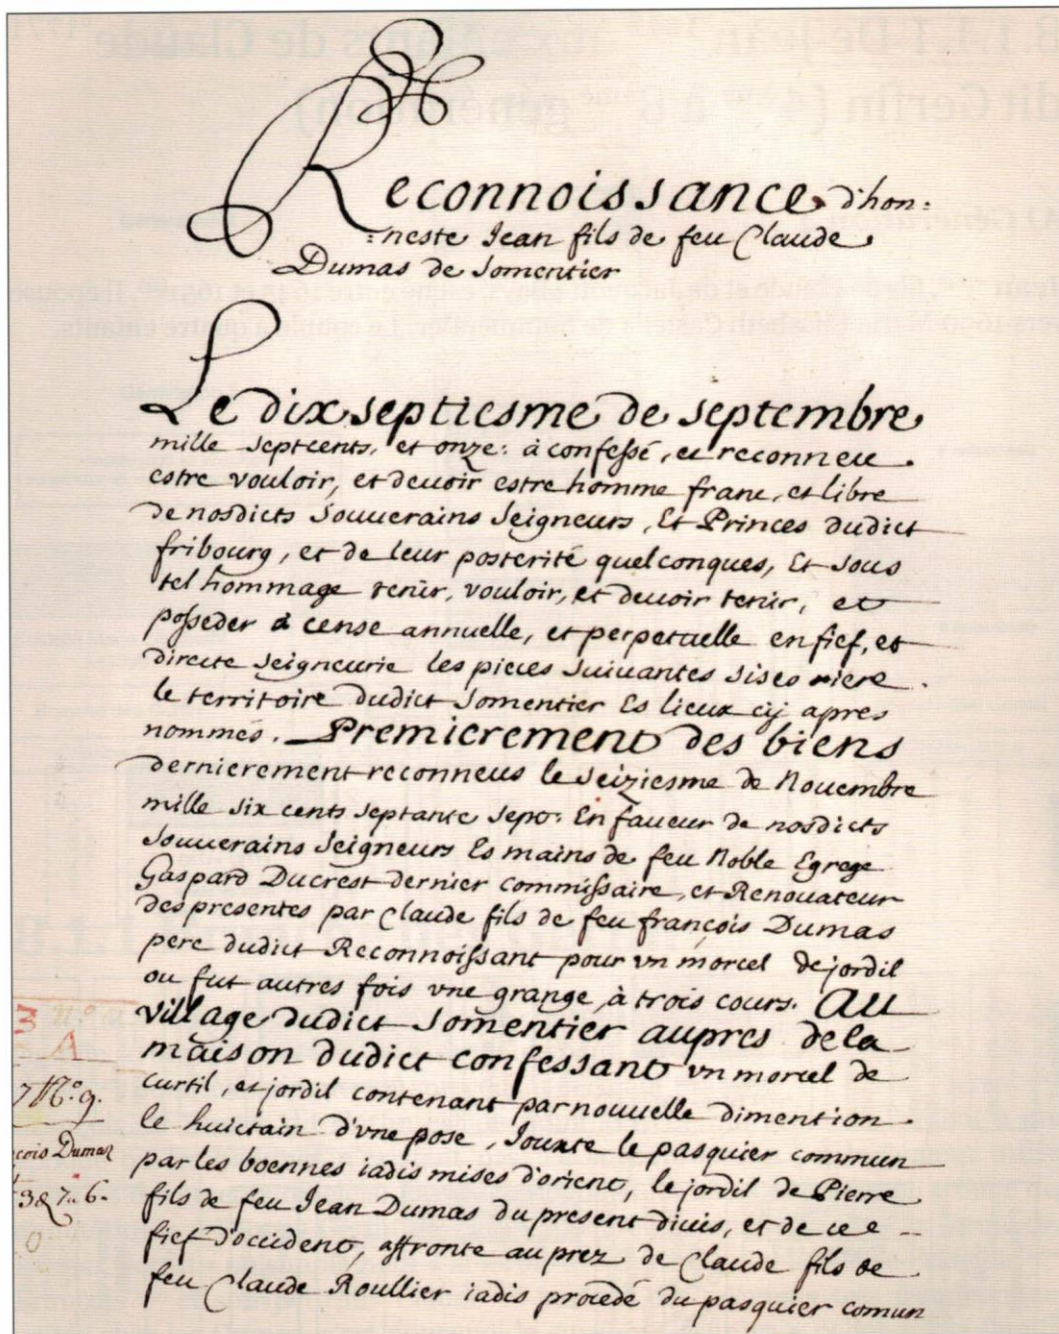 Reconnoissance d'hon=
=neste Jean fils de feu Claude
Dumas de Somentier
Le dix septiesme de septembre
mille septcents, et onze: à confessé, et reconneu
estre vouloir, et devoir estre homme franc, et libre
de nosdicts Souuerains Seigneurs, Et Princes dudict
fribourg, et de leur posterité quelconques, Et sous
tel hommage tenir, vouloir, et deuoir tenir, et
posseder à cense annuelle, et perpetuelle en fief, et
directe seigneurie les pieces suiuantes sises riere
le territoire dudict Somentier Es lieux cÿ apres
nommés. Premierement des biens
dernierement reconneus le seiziesme de Nouembre
mille six cents septante sept: En faueur de nosdicts
Souuerains Seigneurs Es mains de feu Noble Egrege
Gaspard Ducrest dernier commissaire, et Renouateur
des presentes par Claude fils de feu françois Dumas
pere dudict Reconnoissant pour vn morcel de jordil
ou fut autres fois vne grange, à trois cours. Au
village dudict Somentier aupres de la
maison dudict confessant vn morcel de
curtil, et jordil contenant par nouuelle dimention
le huictain d'vne pose, Jouxte le pasquier commun
par les boennes iadis mises d'orient, le jordil de Pierre
fils de feu Jean Dumas du present diuis, et de ce
fief d'occident, affronte au prez de Claude fils de
feu Claude Roullier iadis procedé du pasquier comun
3 n.º
A
7 N.º 9.
cois Dumas
3 & 7. 6.